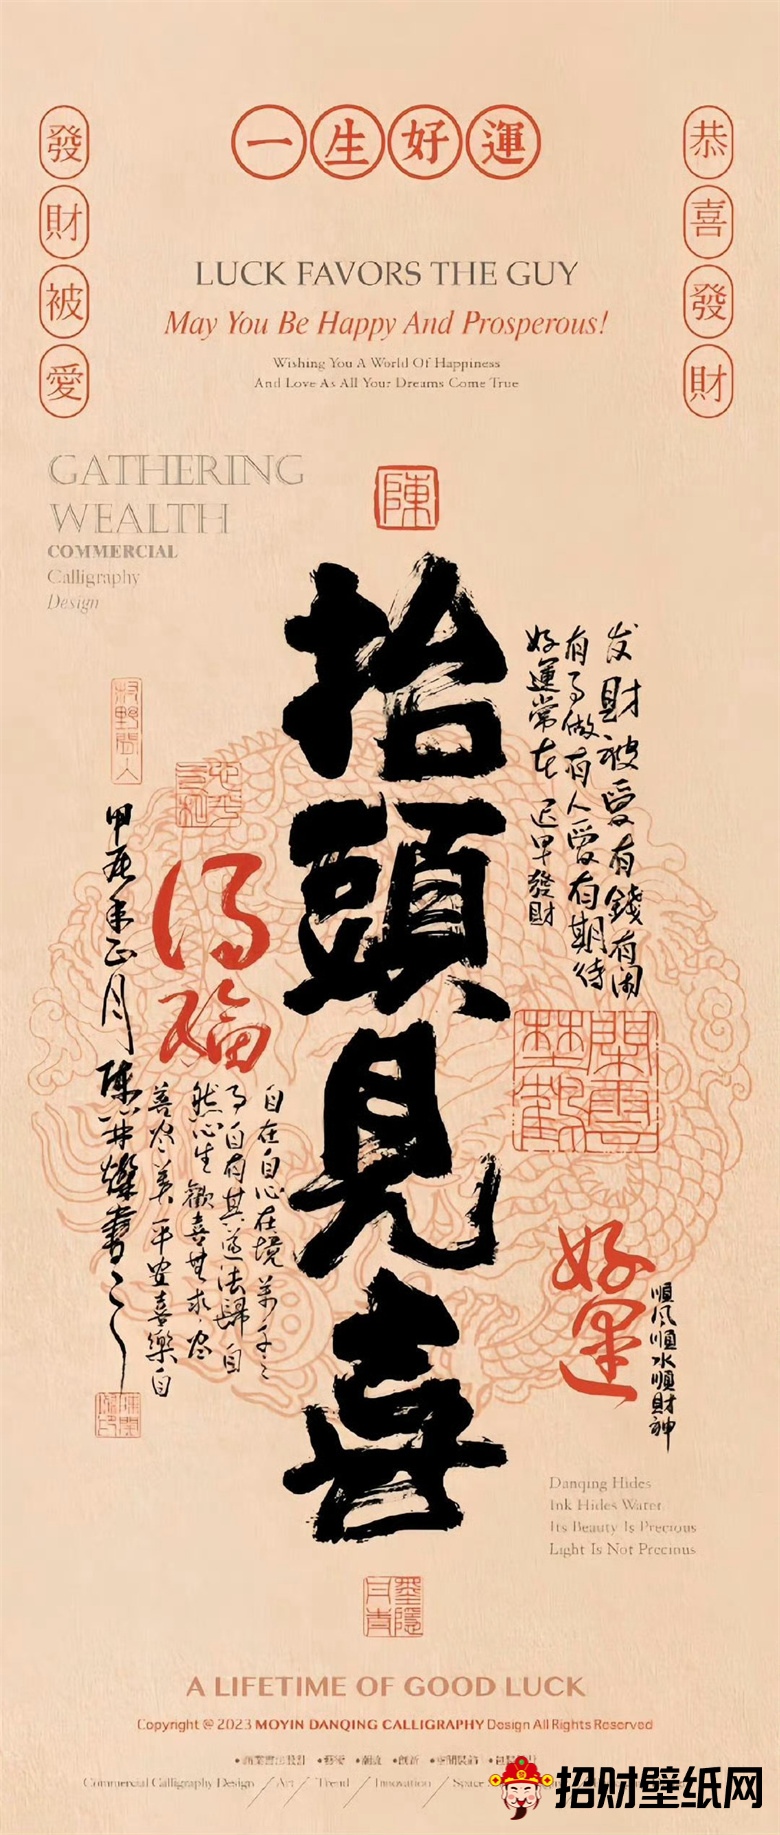 一生好運
發財被愛
恭喜發財
LUCK FAVORS THE GUY
May You Be Happy And Prosperous!
Wishing You A World Of Happiness
And Love As All Your Dreams Come True
GATHERING
WEALTH
COMMERCIAL
Calligraphy
Design
陳
抬頭見喜
发財被愛有錢有闲
有事做有人愛有期待
好運常在 迟早發財
得福
甲辰年正月
自在自心在境
善 美平安喜樂自
好運
順风順水順財神
Danqing Hides
Ink Hides Water
Its Beauty Is Precious
Light Is Not Precious
墨隱
A LIFETIME OF GOOD LUCK
Copyright @ 2023 MOYIN DANQING CALLIGRAPHY Design All Rights Reserved
•商業書法設計 •藝術 •潮流 •創新 •空間裝飾
Commercial Calligraphy Design / Art / Trend / Innovation / Space
招财壁纸网